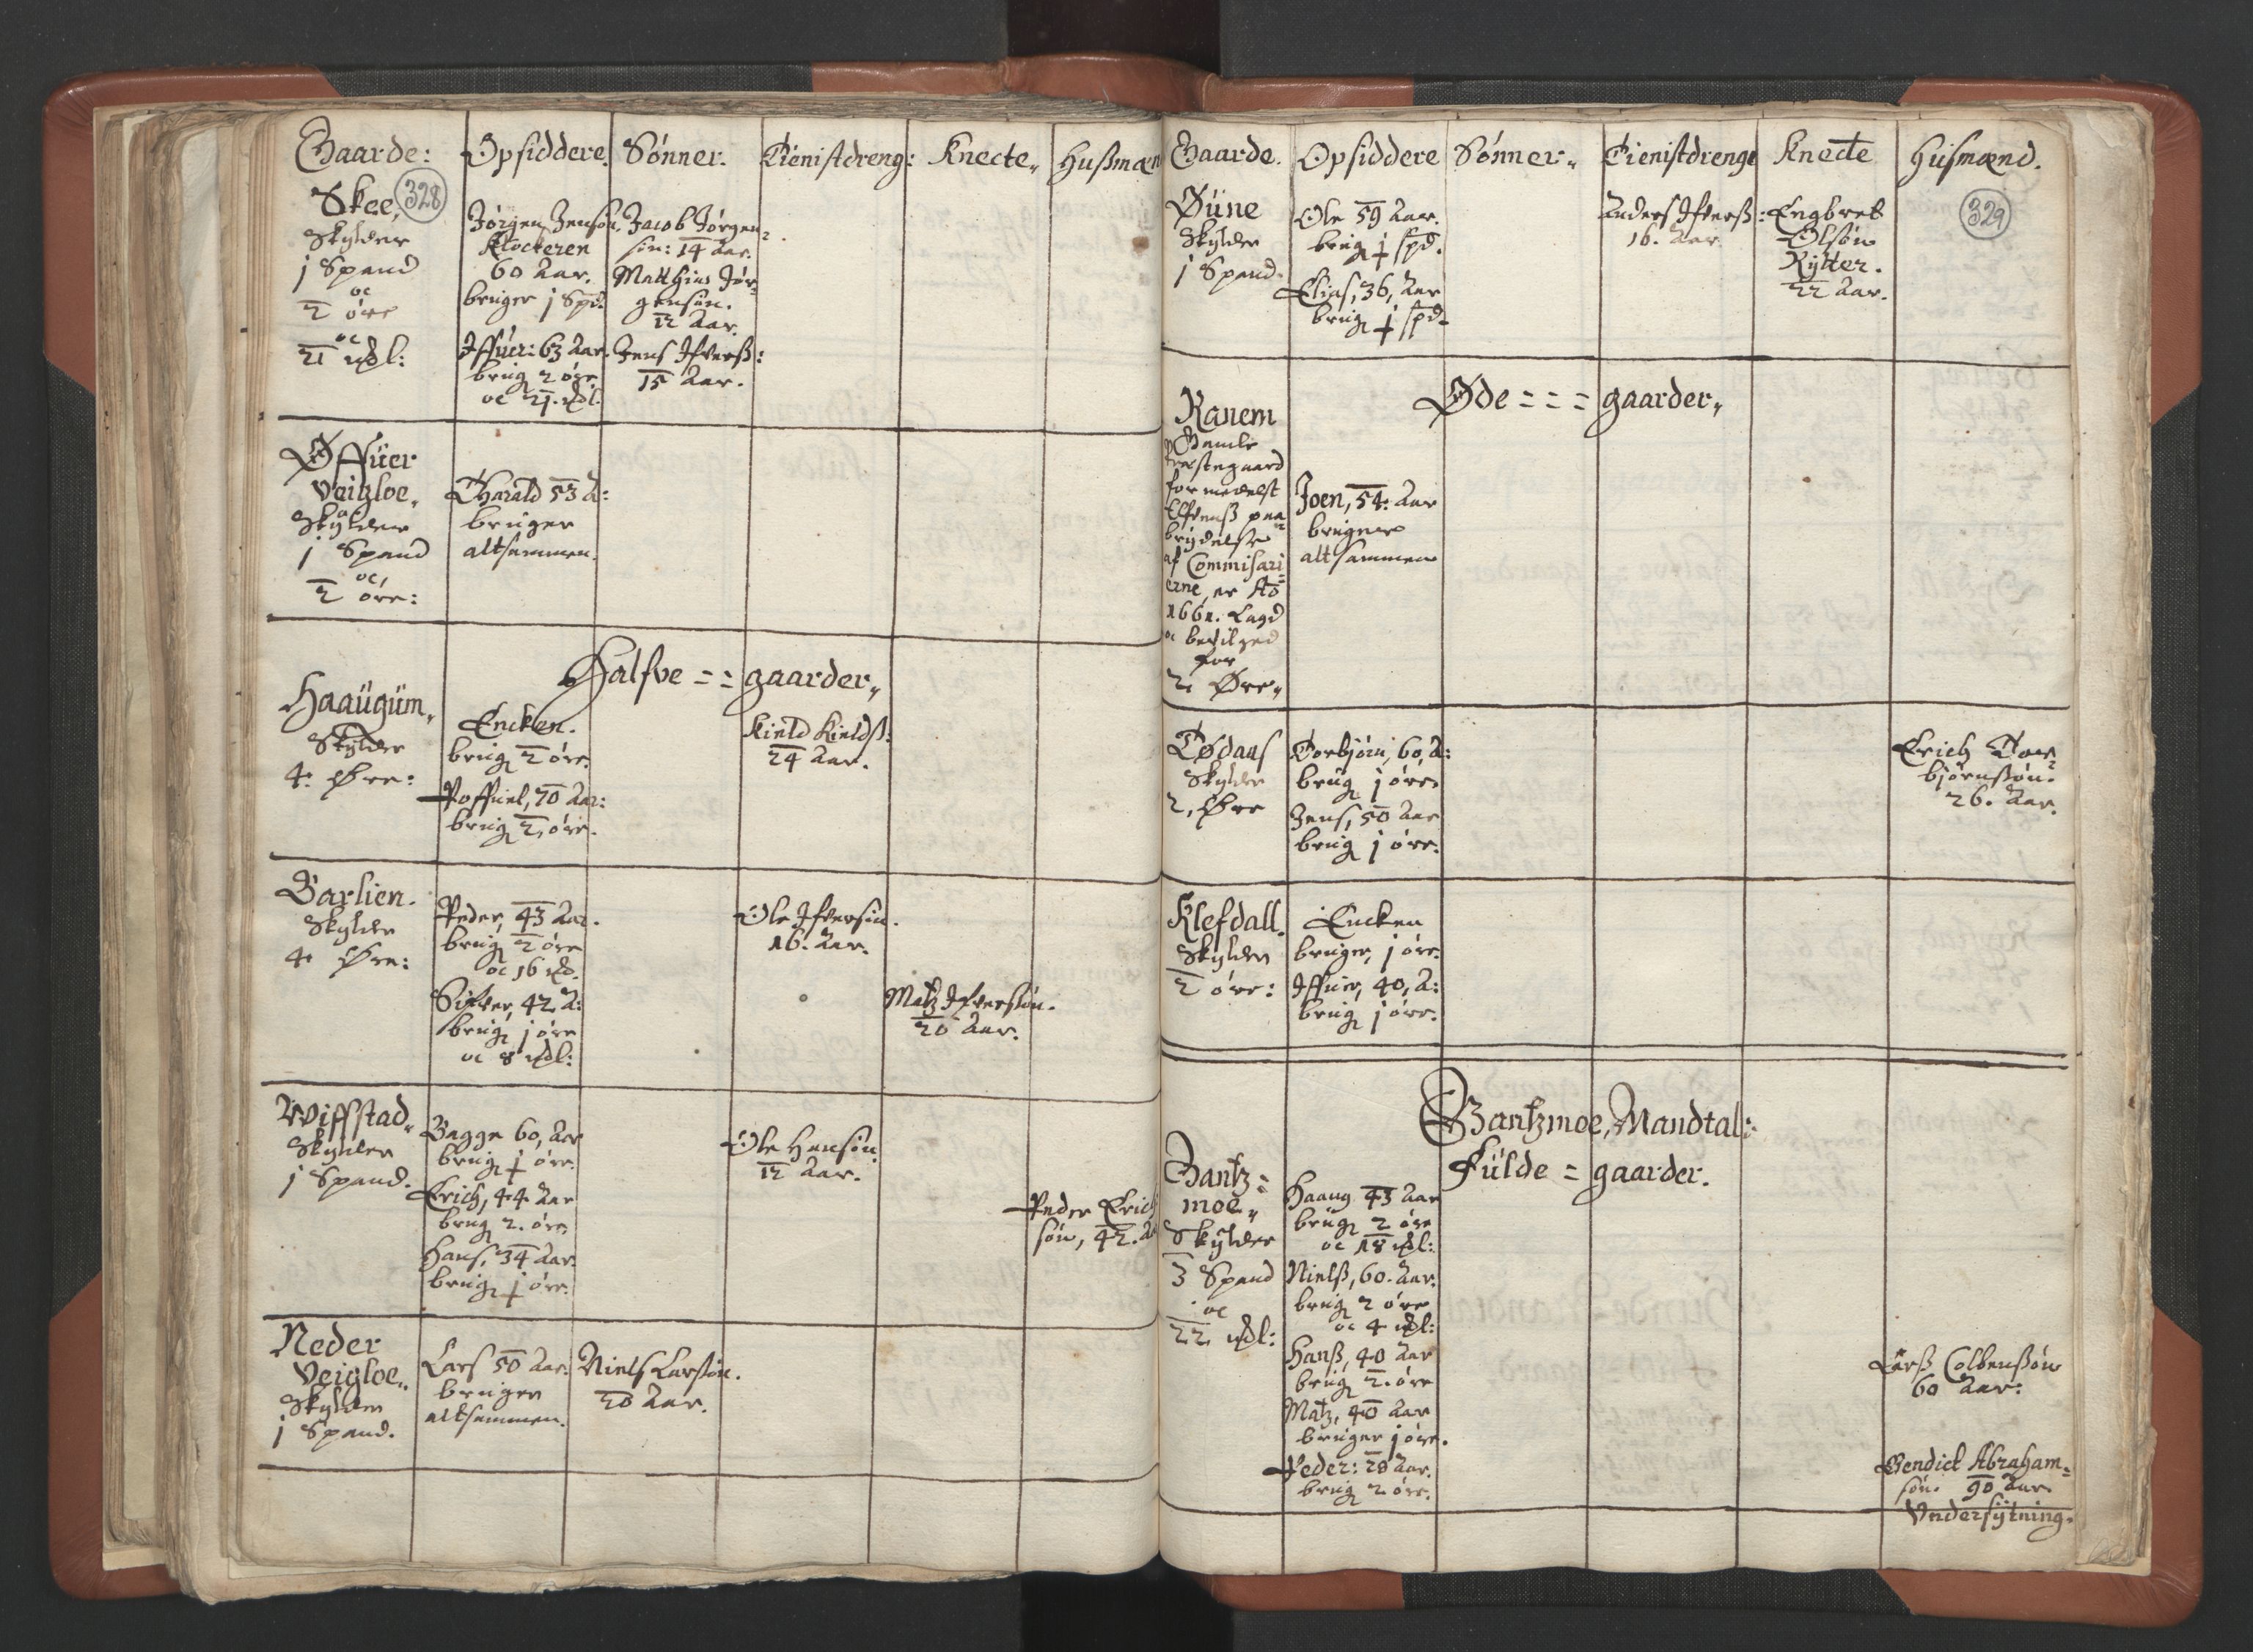 Gaarde: Opsiddere. Sønner. Tienistdreng: Knecte„ Hußmæn
328
Skee,
Skylder
j Spand
oc
2 öre
oc
21 mdl:
Jörgen Jensön,
Klockeren
60 Aar.
bruger j Spd.
Iffuer: 63 Aar.
brug 2 öre
oc 21. mdl.
Jacob Jörgen=
sön: 14 Aar.
Matthias Jör=
gensön.
12 Aar.
Jens Ifverß:
15 Aar.
Øffüer
Veigloe„
Skylder
j Spand
oc,
2 öre:
Harald 53 A:
bruger
altsammen.
Halfve == gaarder„
Haaügüm„
Skylder
4 Øre:
Encken.
brug 2 öre.
Poffuel, 70 Aar:
brug 2, öre.
Kield Kieldß:
24 Aar.
Barlien.
Skylder
4 Øre:
Peder, 43 Aar.
brug 2 öre
oc 16 mdl.
Sifver, 42 A:
brug j öre
oc 8 mdl:
Ole Ifversön.
16. Aar.
Matz Ifversön.
20 Aar.
Wiffstad„
Skylder
j Spand.
Bagge 60, Aar
brug j öre.
Erich, 44 Aar
brug 2. öre,
Hans, 34 Aar.
brug j öre.
Ole Hansön.
12 Aar.
Peder Erich
sön, 42. A
Neder
Veigloe„
Skylder
j Spand.
Lars 50 Aar:
bruger
altsammen.
Niels Larsön.
20 Aar.
Gaarde. Opsiddere Sønner„ Tienistdrenge Knecte Husmænd.
329
Øüne
Skylder
j Spand.
Ole 59 Aar.
brug ½ spd.
Elias, 36, Aar
brug ½ spd.
Anders Ifverß:
16. Aar.
Engbret
Olsön
Rytter.
22 Aar.
Øde = = = gaarder„
Ranem
Gamle
Prestegaard
formedelst
Elfvenß paa
brydelse
af Commisari=
erne, er Ao
1661. Lagd
oc bevilged
for
2. Øre„
Joen, 54. Aar
bruger
altsammen
Tødaas
Skylder
2, Øre
Torbjörn, 60, A:
brug j öre,
Jens, 50 Aar
brug j öre.
Erich Tor=
björnsön.
26. Aar.
Klefdall.
Skylder
2 öre:
Encken
bruger, j öre.
Iffuer, 40, A:
brug j öre.
Gantzmoe, Mandtal:
Fülde = gaarder.
Gantz=
moe„
Skylder
3 Spand
oc
22 mdl:
Haaug 43 Aar
brug 2 öre
oc 18 mdl:
Nielß, 60. Aar.
brug 2 öre
oc 4 mdl:
Hanß, 40 Aar
brug 2. öre
Matz, 40 Aar
bruger j öre.
Peder: 28 Aar.
brug 2 öre.
Larß Colbensön
60 Aar:
Bendict Abraham=
sön. 90 Aar
Vndersytning.